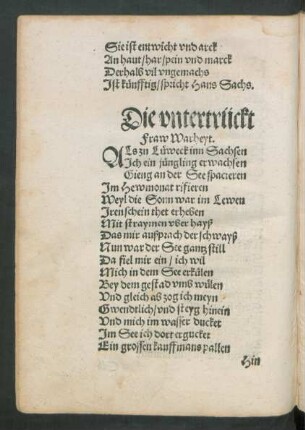 Sie ist entwicht vnd arck
An haut / har / pein vnd marck
Derhalb vil vngemachs
Ist künfftig / spricht Hans Sachs.
Die vntertrückt
Fraw Warheyt.
Als zu Lüweck inn Sachsen
Ich ein jüngling erwachsen
Gieng an der See spacieren
Im Hewmonat refieren
Weyl die Sonn war im Lewen
Iren schein thet erheben
Mit straymen vber hayß
Das mir aufprach der schwayß
Nun war der See gantz still
Da fiel mir ein / ich wil
Mich in dem See erkülen
Bey dem gestad vmb wülen
Vnd gleich ab zog ich meyn
Gwendtlich / vnd steyg hinein
Vnd mich im wasser ducket
Im See ich dort ergucket
Ein grossen kauffmans pallen
Hin